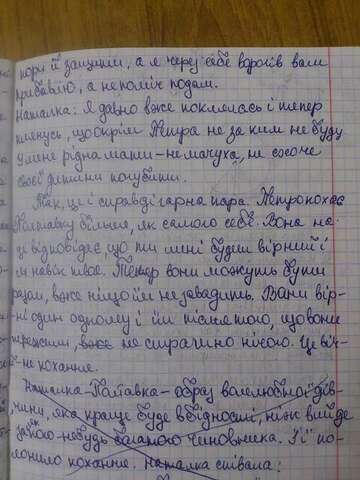 порі й защита, а я через себе ворогів вам
прибавлю, а не поміч подам.
Наталка: Я давно вже поклялась і тепер
клянусь, що окрім Петра не за ким не буду
у мене рідна мати – не мачуха, не схоче
своєї дитини погубити.
Так, це і справді гарна пара. Петро кохає
Полтавку більше, як самого себе. Вона на
це відповідає, що ти мені будеш вірний і
я навік твоя. Тепер вони можуть бути
разом, вже ніщо їм не завадить. Вони вір-
ні один одному і їм після того, що вони
пережили, вже не страшно нічого. Це віч-
не кохання.
Наталка-Полтавка – образ волелюбної дів-
чини, яка краще буде в бідності, ніж вийде
за якого-небудь багатого чиновника. Її по-
лонило кохання. Наталка співала: